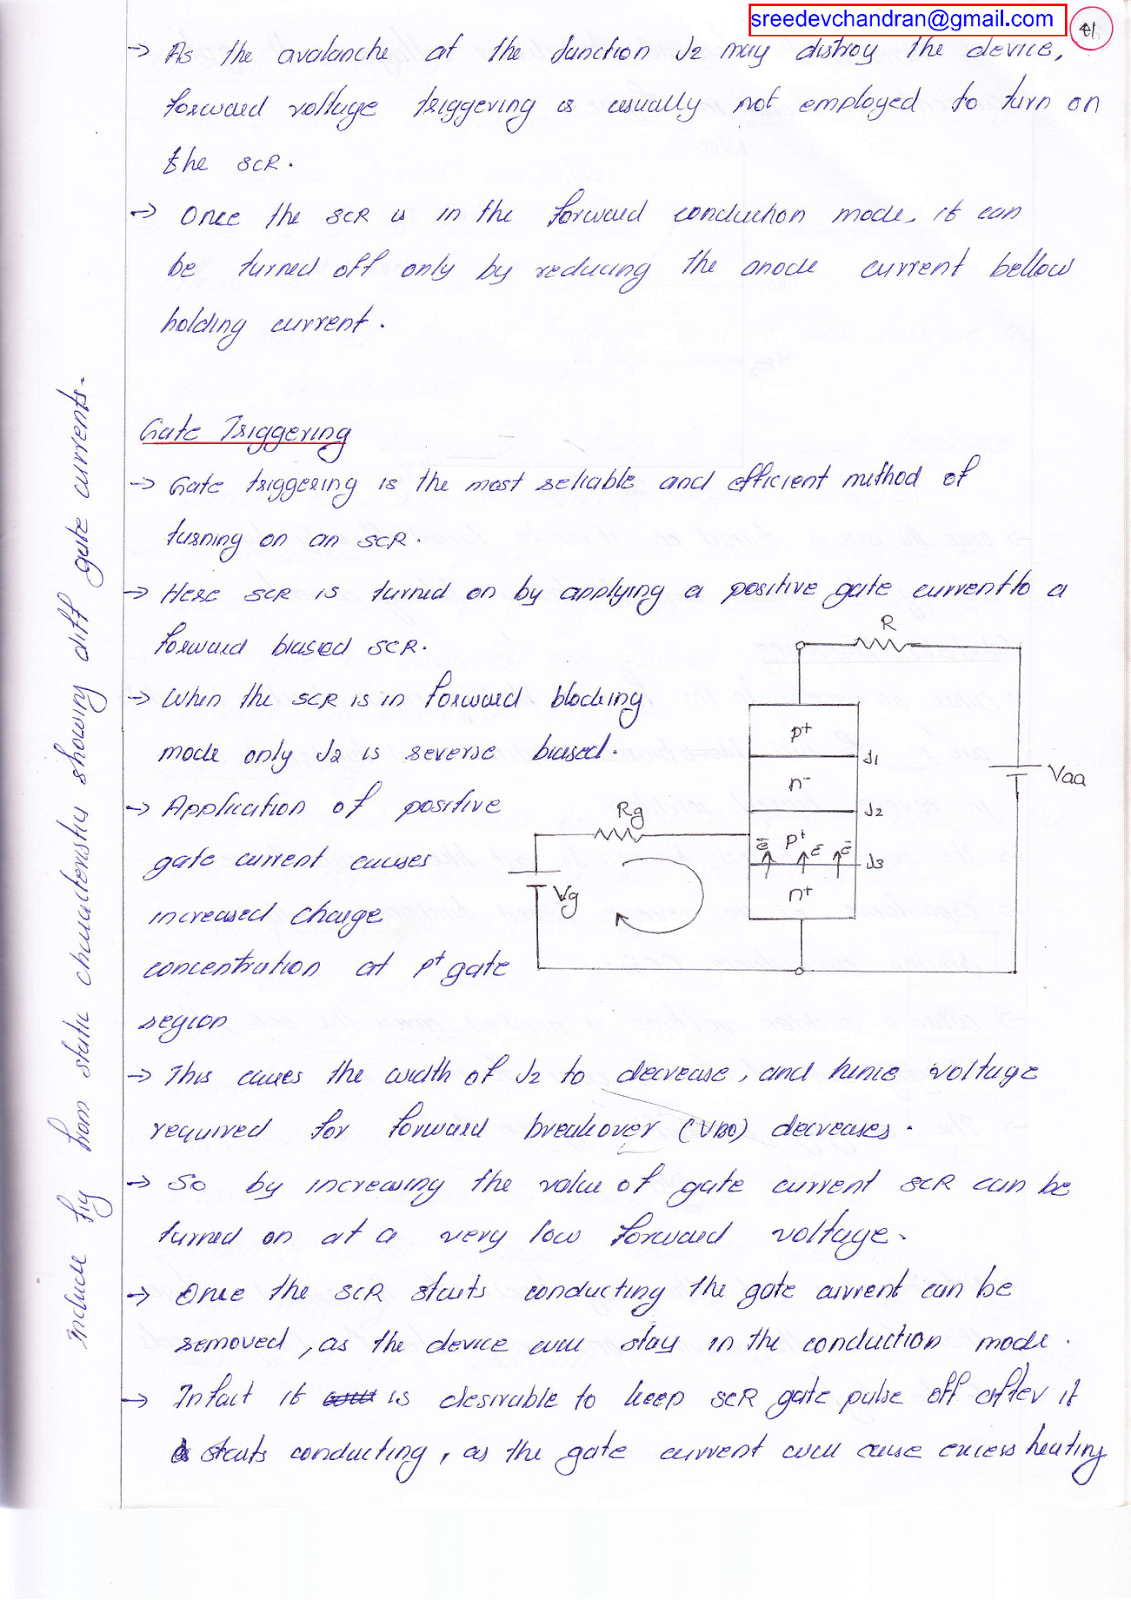 sreedevchandran@gmail.com
41
→ As the avalanche at the junction J2 may distroy the device,
forward voltage triggering is usually not employed to turn on
the SCR.
→ Once the SCR is in the forward conduction mode, it can
be turned off only by reducing the anode current bellow
holding current.
Gate Triggering
→ Gate triggering is the most reliable and efficient method of
turning on an SCR.
→ Here SCR is turned on by applying a positive gate current to a
forward biased SCR.
→ When the SCR is in forward blocking
mode only J2 is reverse biased.
→ Application of positive
gate current causes
increased charge
concentration at p+ gate
region
R
p+
J1
n-
Vaa
J2
Rg
ē p+ ē ē
J3
Vg
n+
→ This causes the width of J2 to decrease, and hence voltage
required for forward breakover (VBO) decreases.
→ So by increasing the value of gate current SCR can be
turned on at a very low forward voltage.
→ Once the SCR starts conducting the gate current can be
removed, as the device will stay in the conduction mode.
→ Infact it is desirable to keep SCR gate pulse off after it
starts conducting, as the gate current will cause excess heating
Include fig from static characteristics showing diff gate currents.